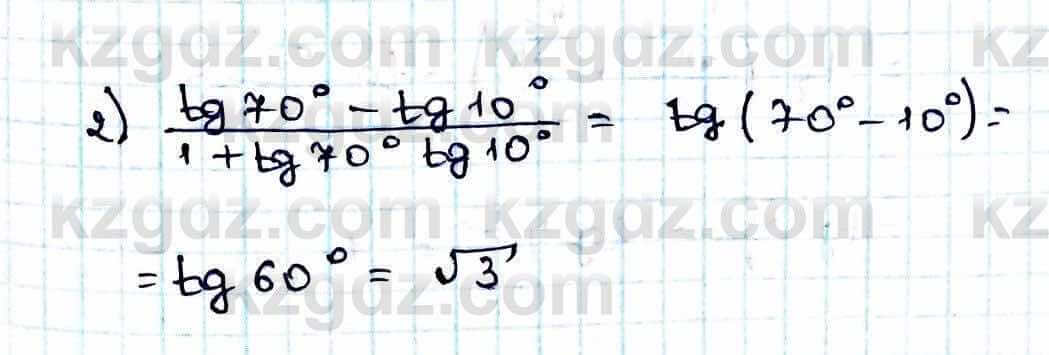 kzgdz.com kzgdz.com kz
2) (tg 70° - tg 10°) / (1 + tg 70° tg 10°) = tg (70° - 10°) =
kzgdz.com kzgdz.com kz
= tg 60° = √3
kzgdz.com